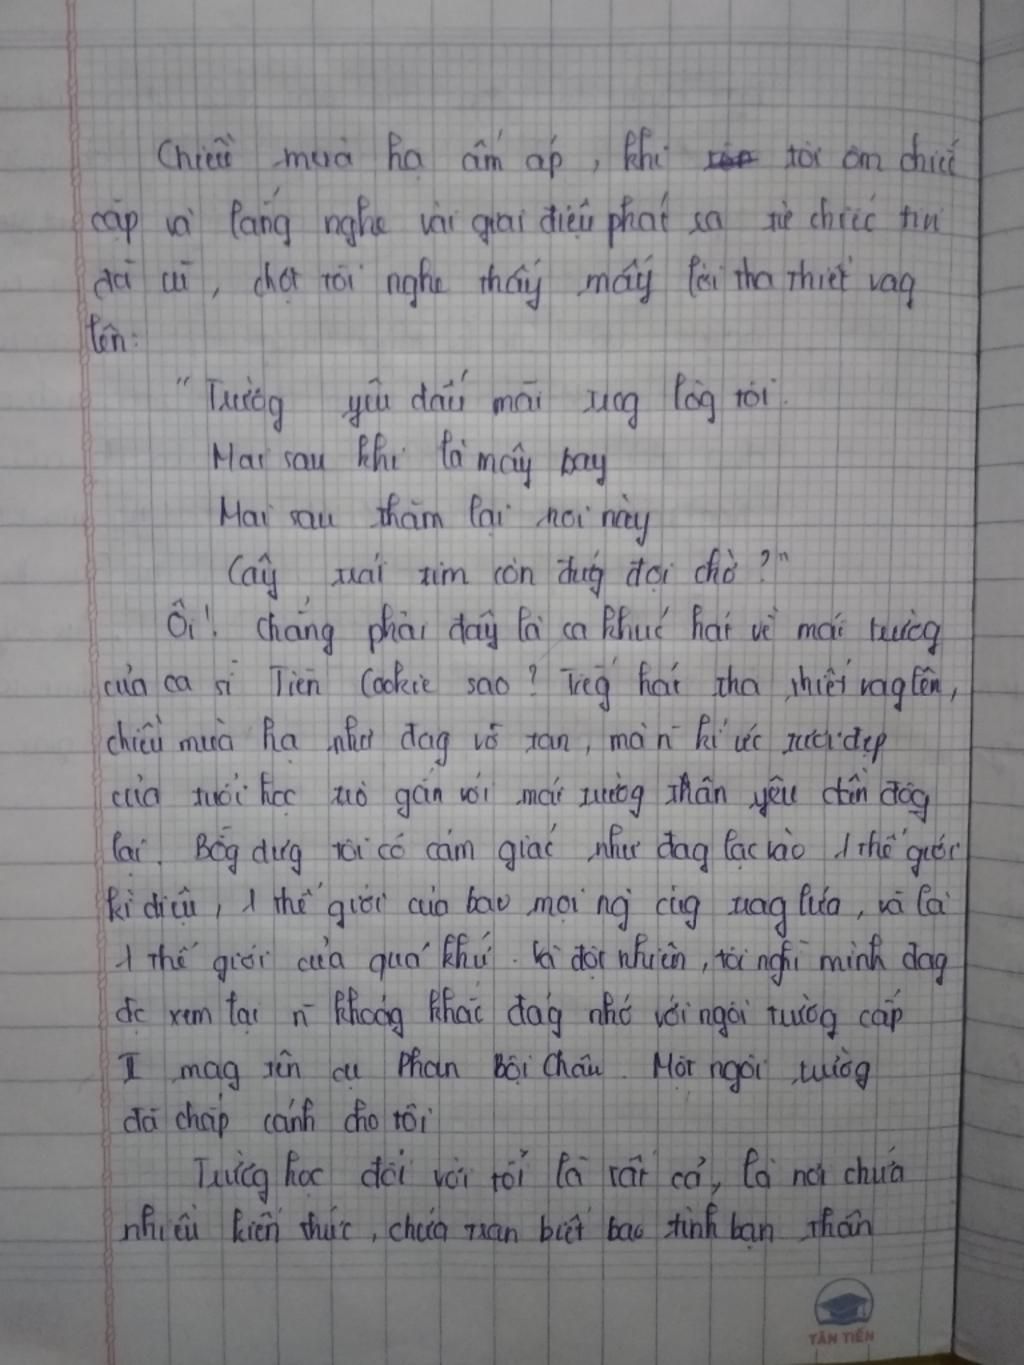 Chiều mùa hạ ấm áp, khi tôi ôm chiếc
cặp và lắng nghe vài giai điệu phát ra từ chiếc tivi
đã cũ, chợt tôi nghe thấy mấy lời tha thiết vag
lên:
"Trườg yêu dấu mãi trog lòg tôi.
Mai sau khi là mây bay
Mai sau thăm lại nơi này
Cây trái tim còn đứg đợi chờ?"
Ôi! Chẳng phải đây là ca khúc hát về mái trườg
của ca sĩ Tiên Cookie sao? Tiếg hát tha thiết vag lên,
chiều mùa hạ như đag vỡ tan, mà n~ kí ức tươi đẹp
của tuổi học trò gắn với mái trườg thân yêu dần đôg
lại. Bỗg dưg tôi có cảm giác như đag lạc vào 1 thế giới
kì diệu, 1 thế giới của bao mọi ng` cùg trag lứa, và là
1 thế giới của quá khứ. Và đột nhiên, tôi nghĩ mình đag
đc xem lại n~ khoảg khắc đág nhớ với ngôi trườg cấp
I mag tên cụ Phan Bội Châu. Một ngôi trườg
đã chắp cánh cho tôi
Trườg học đối với tôi là tất cả, là nơi chứa
nhiều kiến thức, chứa chan biết bao tình bạn thân
TÂN TIẾN